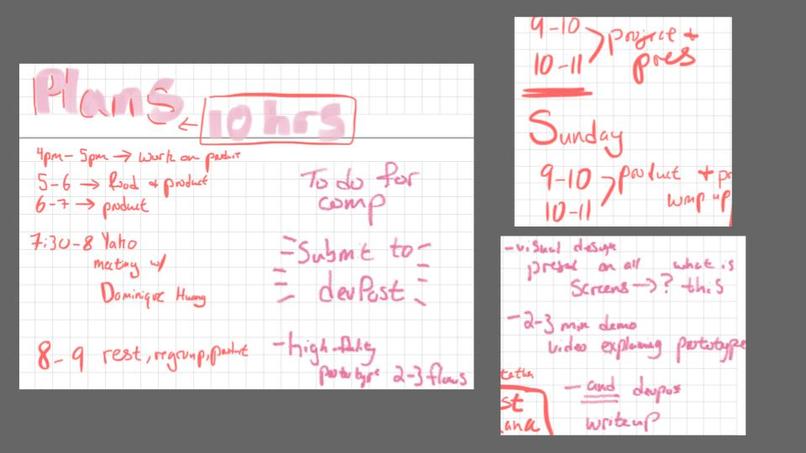 Plans
← 10 hrs
4pm - 5pm → work on product
5-6 → food + product
6-7 → product
7:30-8 Yaho
meeting w/
Dominique Huang
8-9 rest, regroup, product
To do for
comp
Submit to
devPost
- high-fidelity
prototype 2-3 flows
9-10
10-11
project +
pres
Sunday
9-10
10-11
product + p
wrap up
- visual design
present on all what is
Screens → ? this
- 2-3 min demo
video explaining prototype
- and devpos
writeup
st
ana